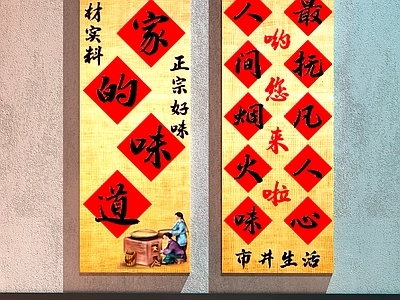 材实料
家的味道
正宗好味
人间烟火味
哟您来啦
最抚凡人心
市井生活